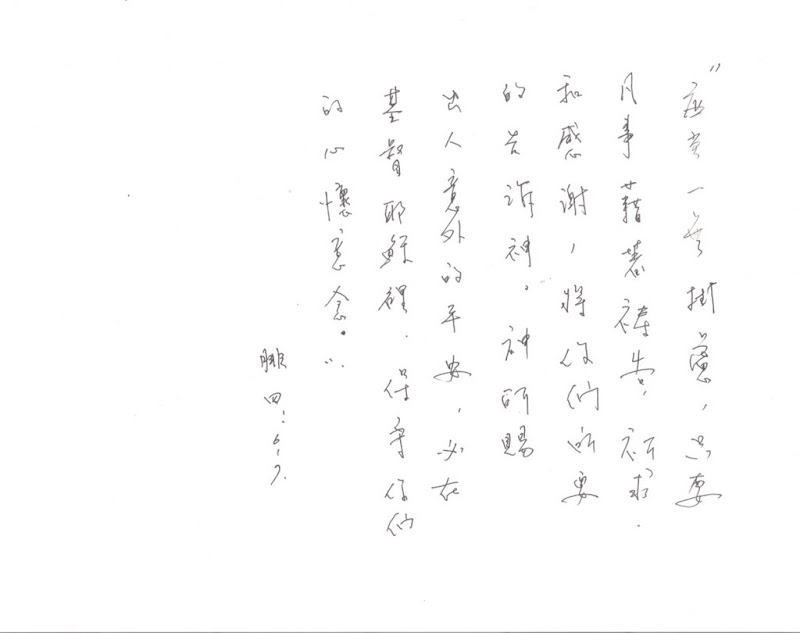 "應當一無掛慮，只要
凡事藉著禱告，祈求．
和感謝，將你們所要
的告訴神。神所賜
出人意外的平安，必在
基督耶穌裡．保守你們
的心懷意念。"
腓四：6-7